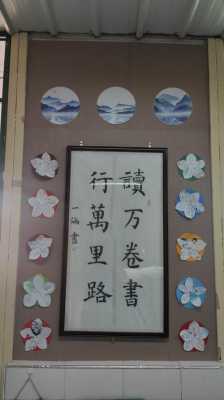 讀万卷書
行萬里路
一涵書